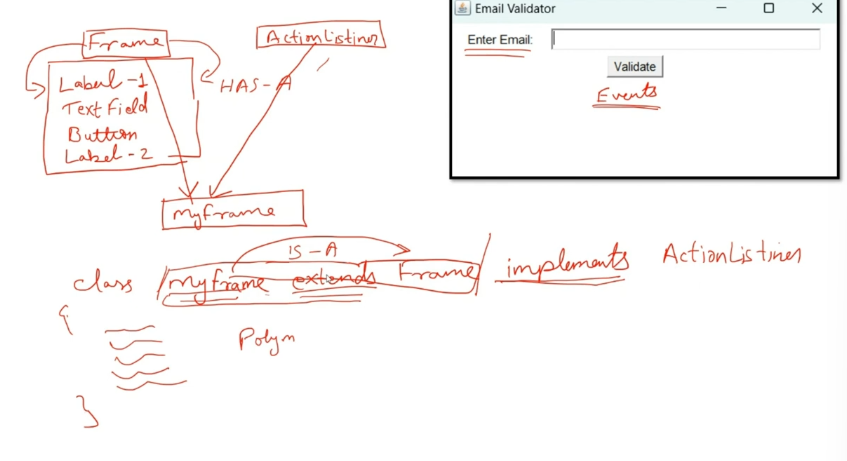 Frame
ActionListiner
Label-1
TextField
Button
Label-2
HAS-A
Email Validator
Enter Email:
Validate
Events
MyFrame
IS-A
class Myframe extends Frame implements ActionListiner
{
Polym
}